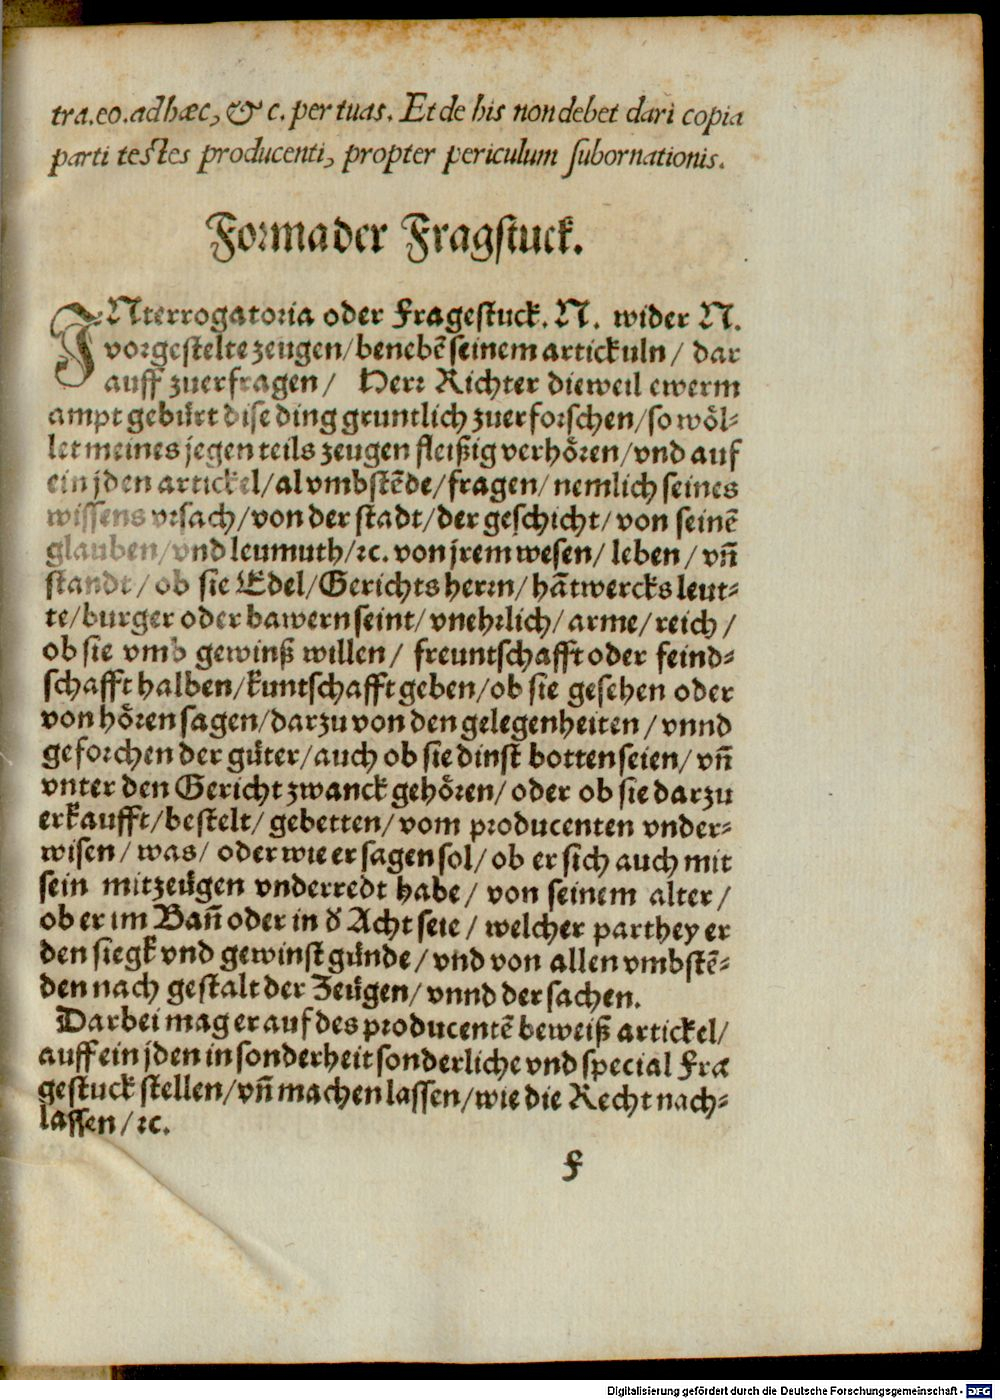 tra.eo.adhæc, & c. per tuas. Et de his non debet dari copia
parti testes producenti, propter periculum subornationis.
Forma der Fragstuck.
INterrogatoria oder Fragestuck. N. wider N.
vorgestelte zeugen/benebẽ seinem artickuln/ dar
auff zuerfragen/ Herr Richter dieweil ewerm
ampt gebürt dise ding gruntlich zuerforschen/so wöl-
let meines jegen teils zeugen fleißig verhören/vnd auf
ein jden artickel/al vmbstẽde/fragen/nemlich seines
wissens vrsach/von der stadt/der geschicht/von seinẽ
glauben/vnd leumuth/ꝛc. von jrem wesen/ leben/vñ
standt/ ob sie Edel/Gerichts herrn/ hãtwercks leut-
te/burger oder bawern seint/vnehrlich/arme/reich/
ob sie vmb gewinß willen/ freuntschafft oder feind-
schafft halben/kuntschafft geben/ob sie gesehen oder
von hören sagen/darzu von den gelegenheiten/vnnd
geforchen der güter/auch ob sie dinst botten seien/vñ
vnter den Gericht zwanck gehören/oder ob sie darzu
erkaufft/bestelt/gebetten/vom producenten vnder-
wisen/was/ oder wie er sagen sol/ob er sich auch mit
sein mitzeügen vnderredt habe/ von seinem alter/
ob er im Bañ oder in d̕ Acht seie/welcher parthey er
den siegk vnd gewinst günde/vnd von allen vmbstẽ-
den nach gestalt der Zeügen/vnnd der sachen.
Darbei mag er auf des producentẽ beweiß artickel/
auff ein jden in sonderheit sonderliche vnd special Fra
gestuck stellen/vñ machen lassen/wie die Recht nach-
lassen/ꝛc.
F
Digitalisierung gefördert durch die Deutsche Forschungsgemeinschaft - DFG